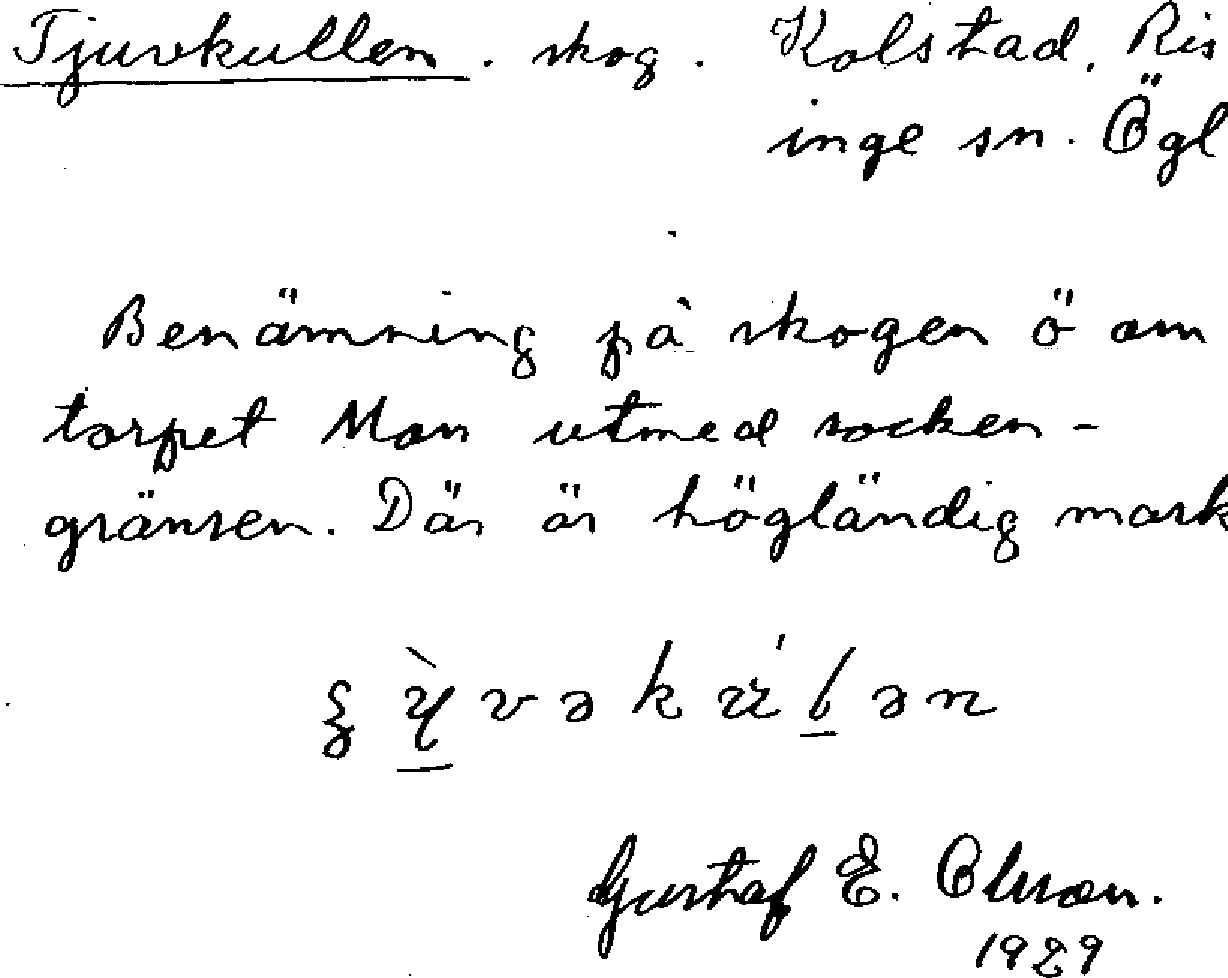 Tjuvkullen. skog. Kolstad, Ris
inge sn. Ögl
Benämning på skogen ö om
torpet Mon utmed socken-
gränsen. Där är högländig mark
Gustaf E. Olsson.
1929